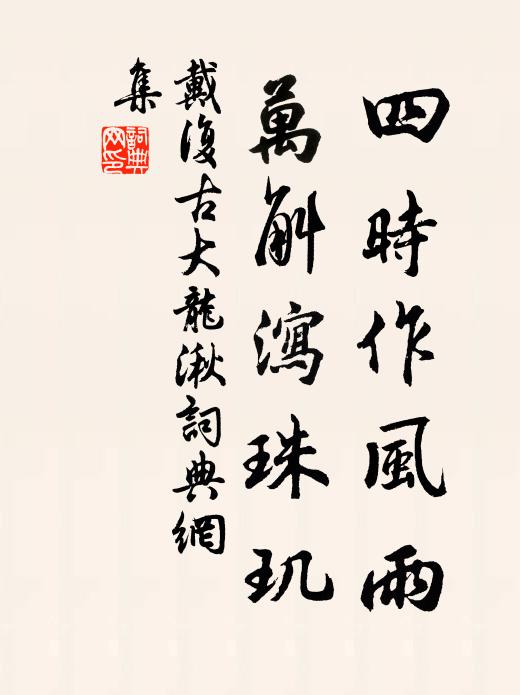 四時作風雨
萬斛瀉珠玑
戴復古大龍湫詞典網
集
詞典网印